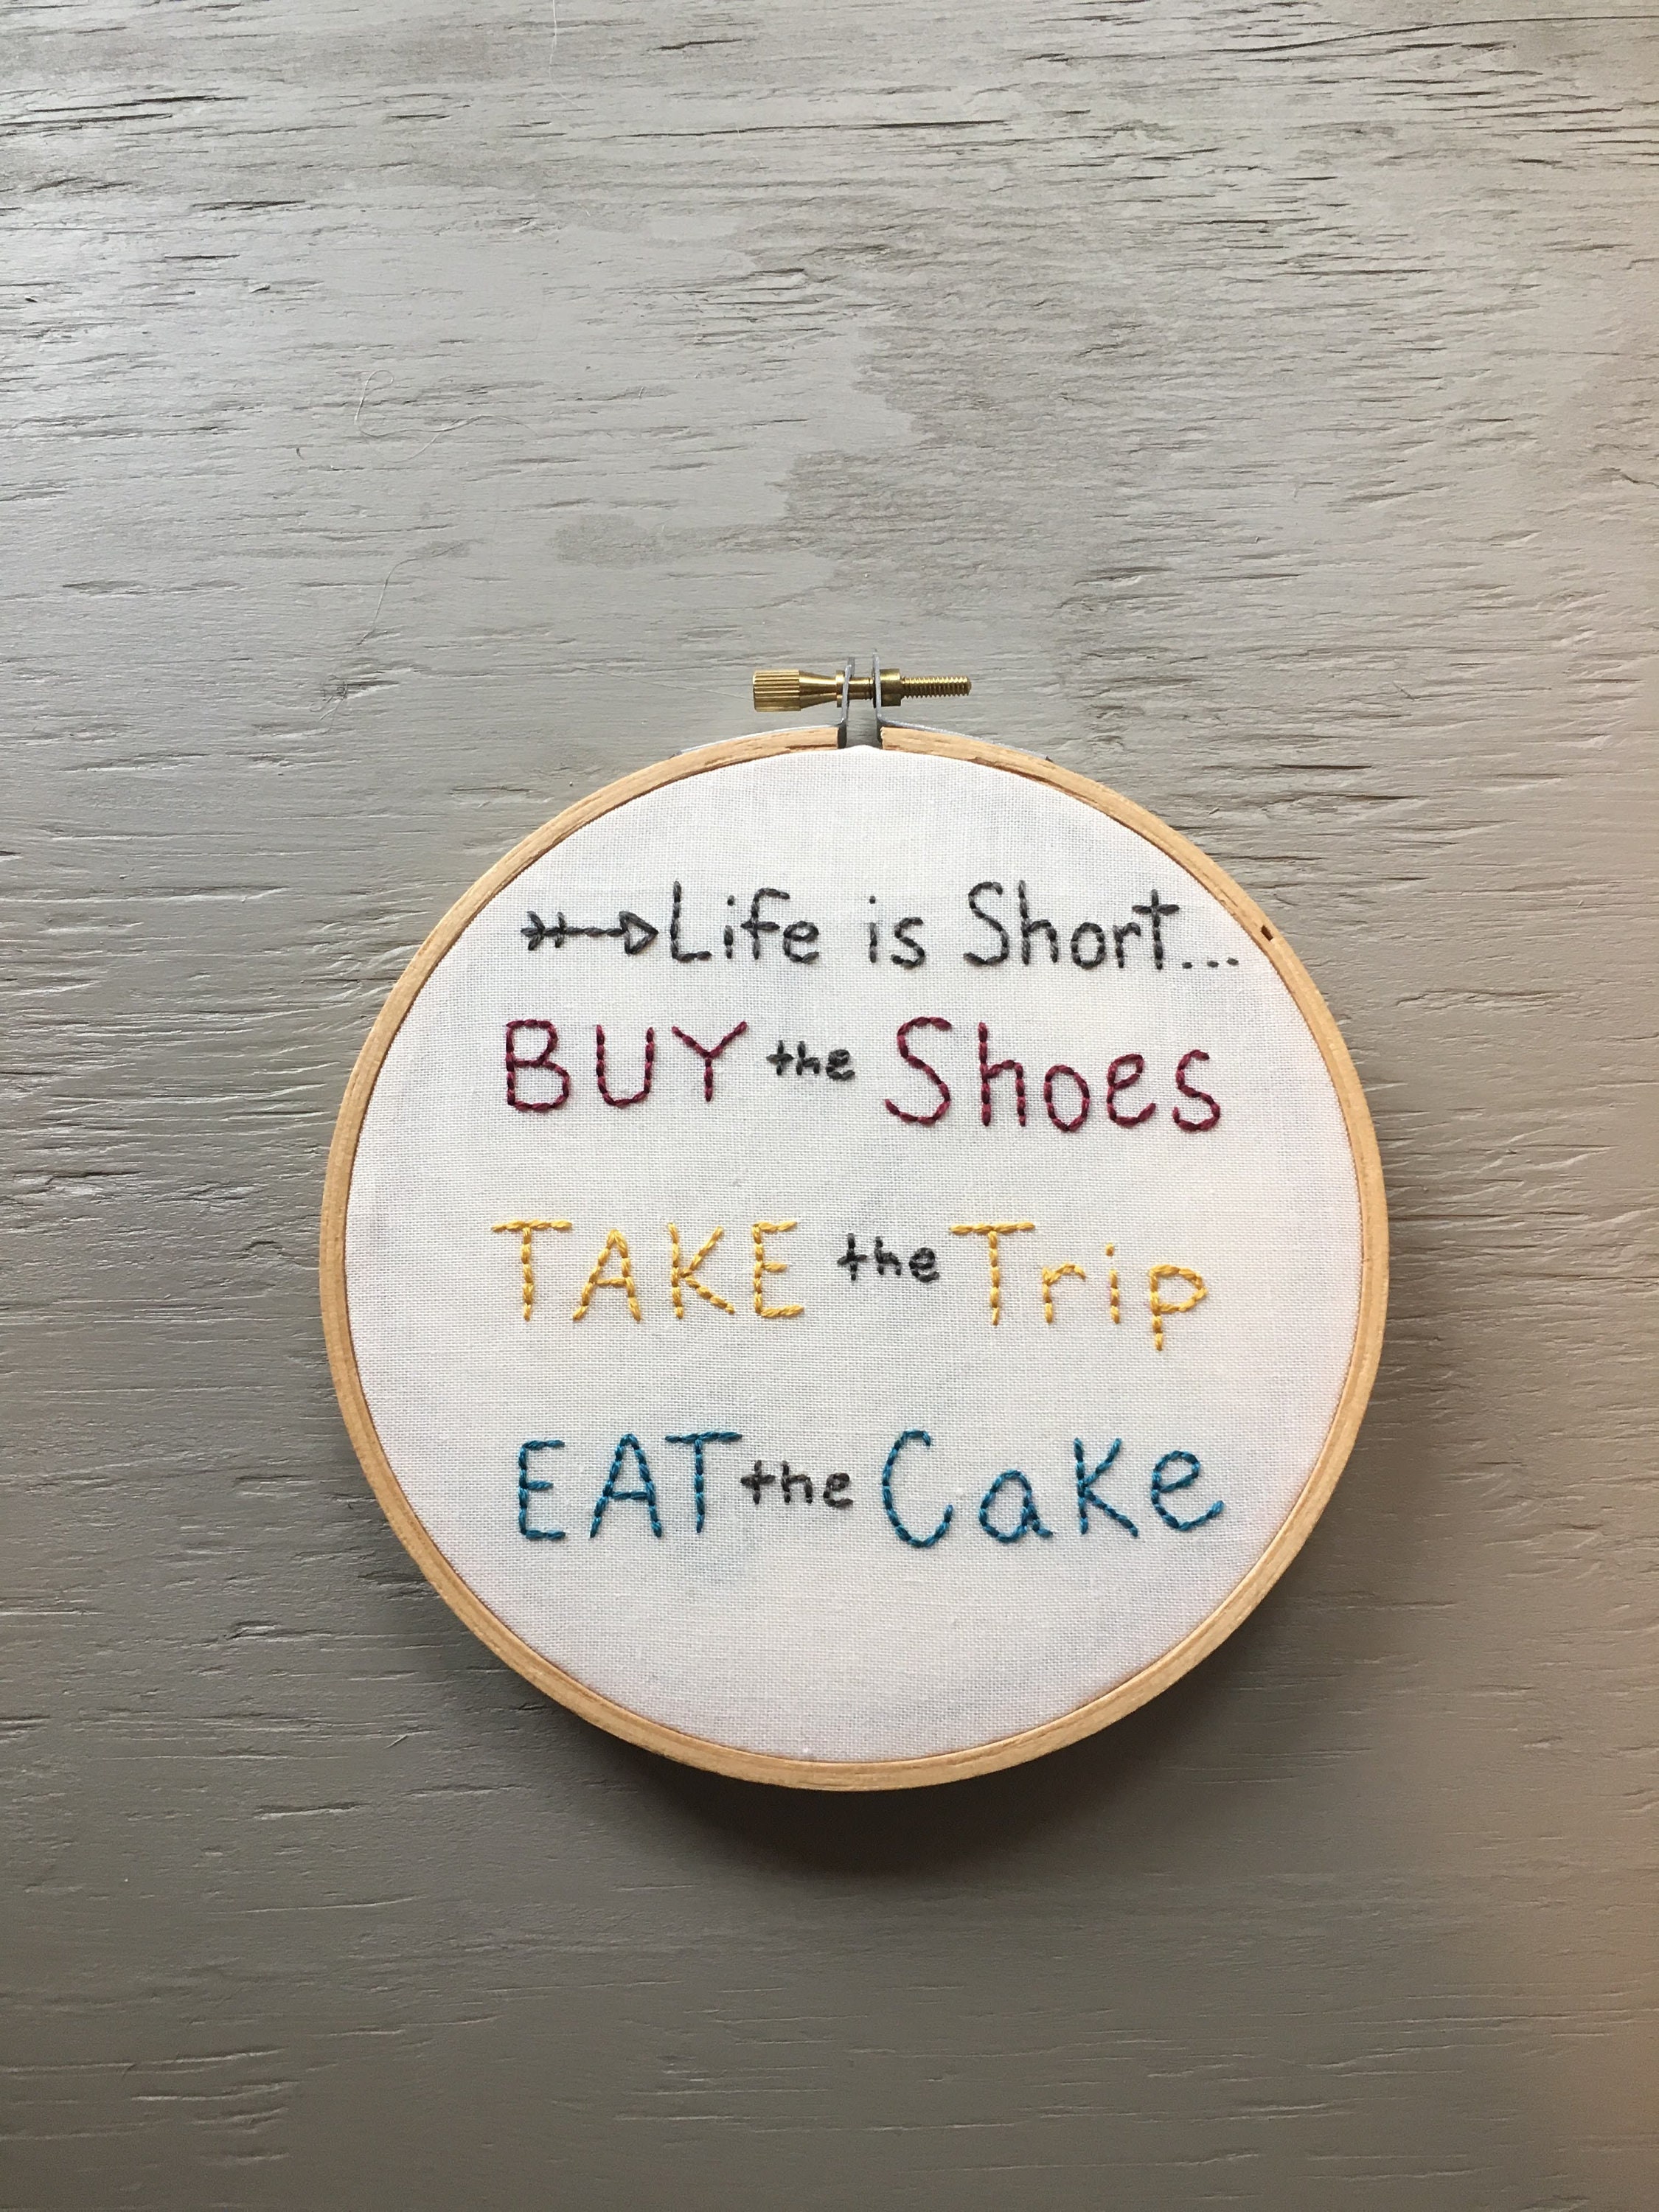 Life is Short...
BUY the Shoes
TAKE the Trip
EAT the Cake